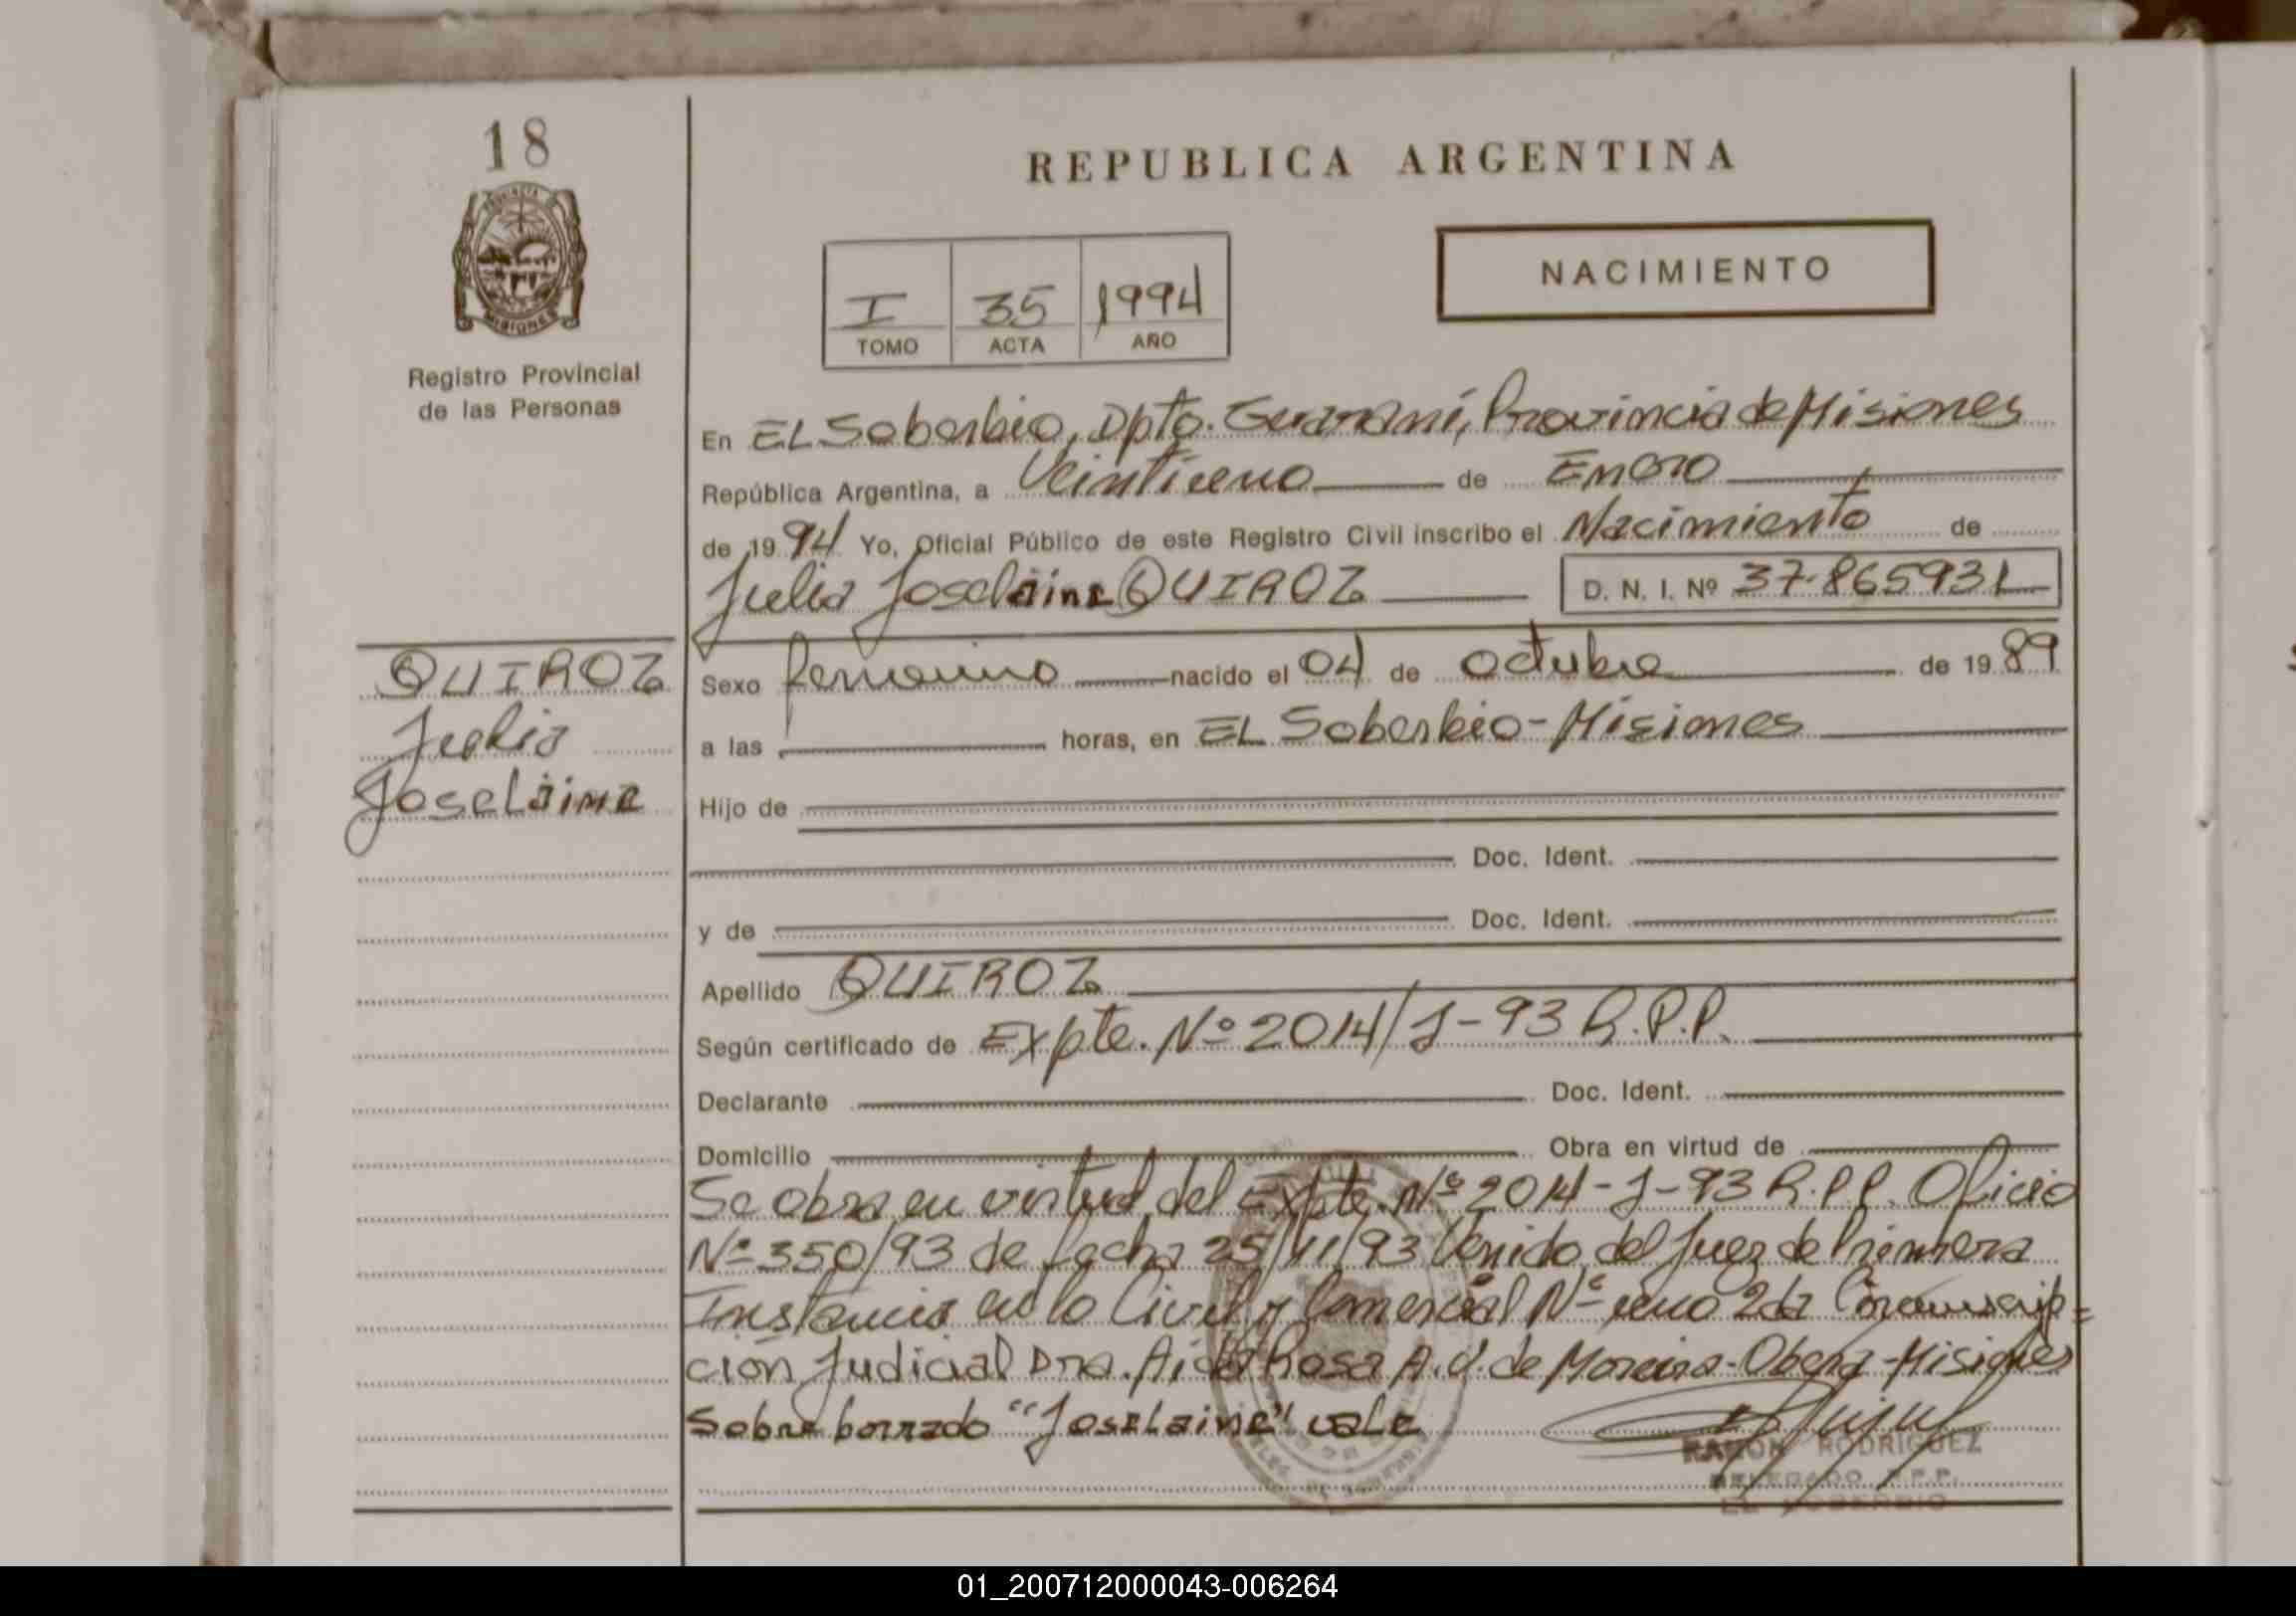 18
PROVINCIA DE
MISIONES
Registro Provincial
de las Personas
QUIROZ
Julia
Joselaine
REPUBLICA ARGENTINA
NACIMIENTO
I 35 1994
TOMO ACTA AÑO
En EL Soberbio, Dpto. Guaraní, Provincia de Misiones
República Argentina, a Veintiuno de Enero
de 1994 Yo, Oficial Público de este Registro Civil inscribo el Nacimiento de
Julia Joselaine QUIROZ D. N. I. Nº 37.865931
Sexo femenino nacido el 04 de octubre de 1989
a las horas, en EL Soberbio-Misiones
Hijo de
Doc. Ident.
y de Doc. Ident.
Apellido QUIROZ
Según certificado de Expte. Nº 2014/J-93 R.P.P.
Declarante Doc. Ident.
Domicilio Obra en virtud de
Se obra en virtud del Expte. Nº 2014-J-93 R.P.P. Oficio
Nº 350/93 de fecha 25/11/93 Venido del Juez de Primera
Instancia en lo Civil y Comercial Nº uno 2da Circunscrip=
ción Judicial Dra. Aida Rosa A. d. de Moreira-Oberá-Misiones
Sobre borrado "Joselaine" vale
RAMON RODRIGUEZ
DELEGADO R.P.P.
EL SOBERBIO
01_200712000043-006264